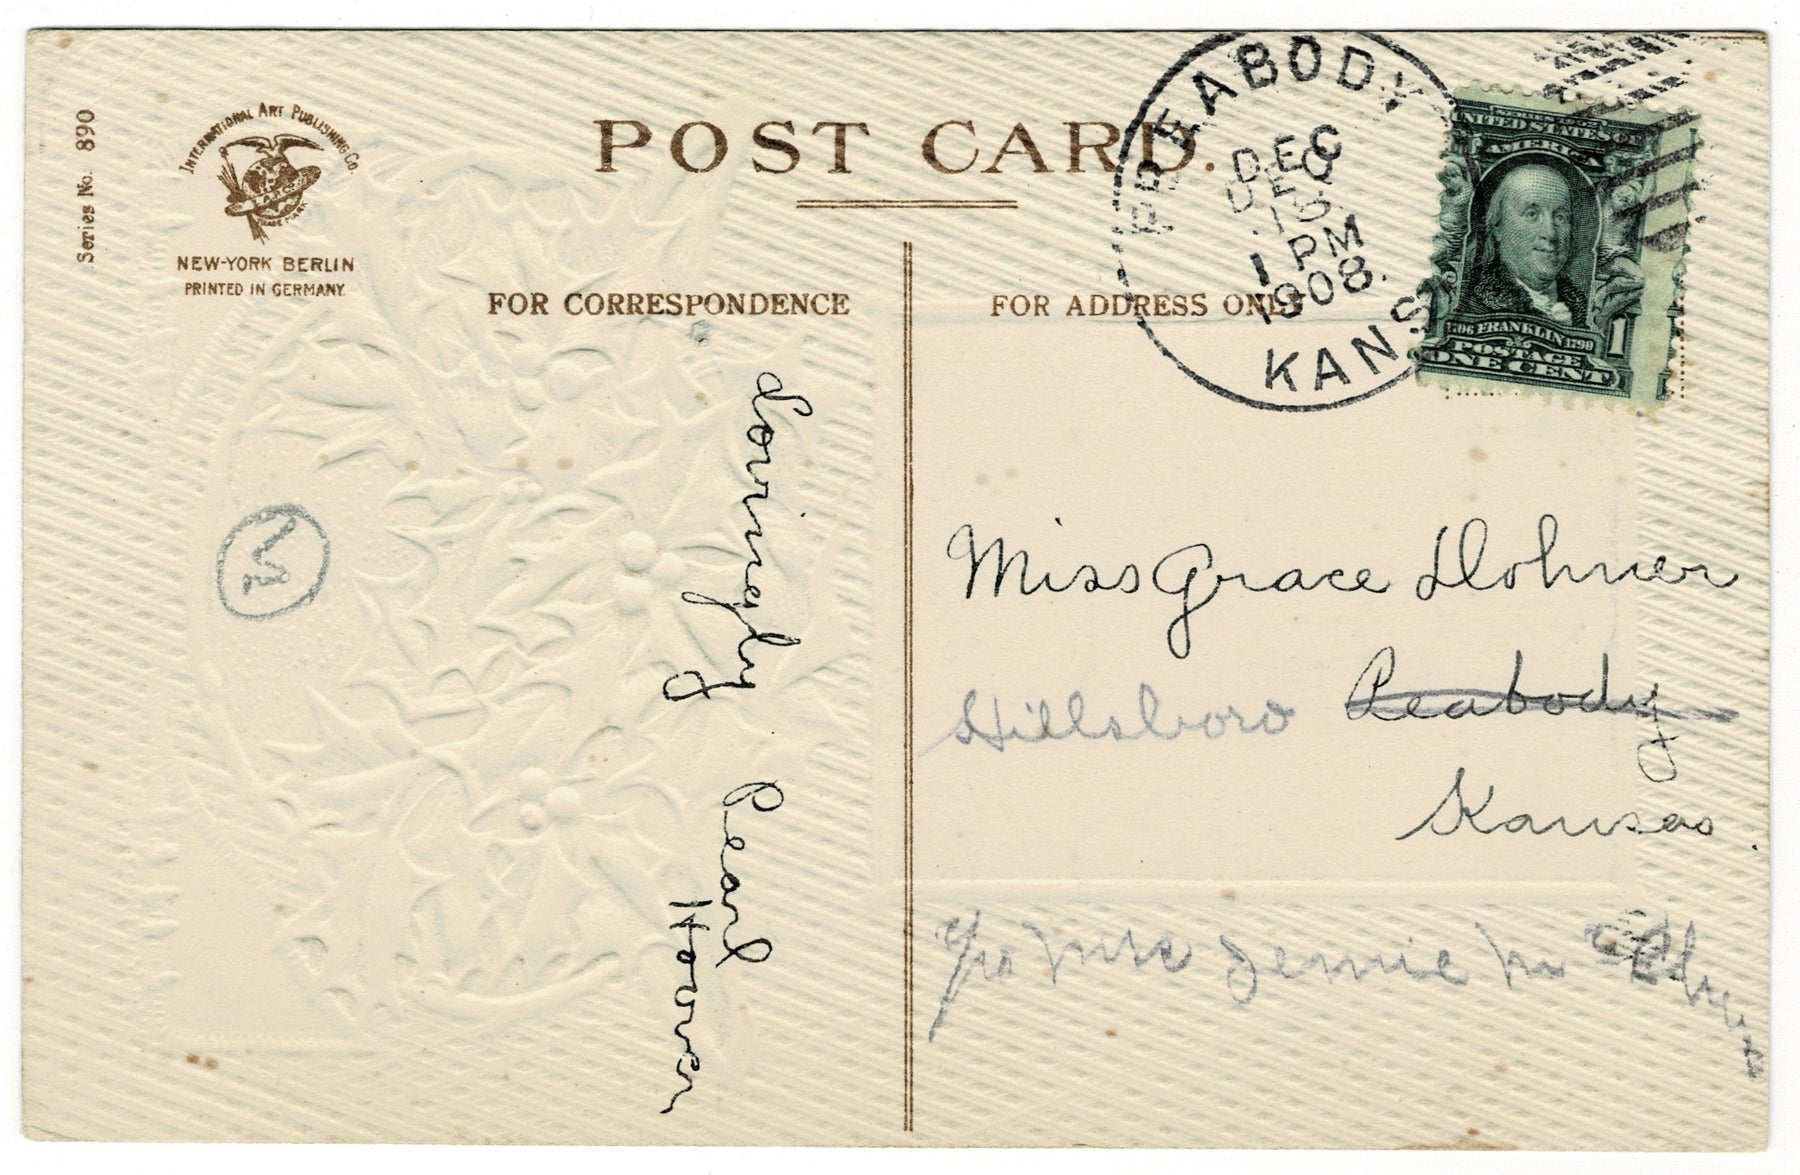 Series No. 890
INTERNATIONAL ART PUBLISHING CO.
NEW-YORK BERLIN
PRINTED IN GERMANY.
POST CARD.
FOR CORRESPONDENCE
FOR ADDRESS ONLY
PEABODY
DEC
15
1 PM
1908.
KANS
UNITED STATES OF
AMERICA
1706 FRANKLIN 1790
POSTAGE
ONE CENT
1
Lovingly
Pearl
Hoover
Miss Grace Dohner
Hillsboro Peabody
Kansas
c/o Mrs Jennie